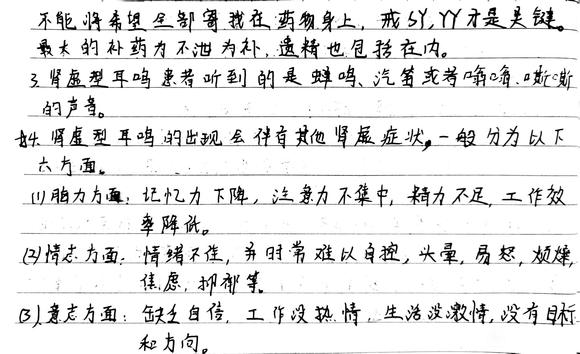 不能将希望全部寄我在药物身上，戒SY,YY才是关键。
最大的补药为不泄为补，遗精也包括在内。
3.肾虚型耳鸣患者听到的是蝉鸣、汽笛或者嗡嗡、嘶嘶
的声音。
4.肾虚型耳鸣的出现会伴有其他肾虚症状，一般分为以下
六方面。
(1)脑力方面：记忆力下降，注意力不集中，精力不足，工作效
率降低。
(2)情志方面：情绪不佳，并时常难以自控，头晕，易怒，烦燥，
焦虑，抑郁等。
(3)意志方面：缺乏自信，工作没热情，生活没激情，没有目标
和方向。